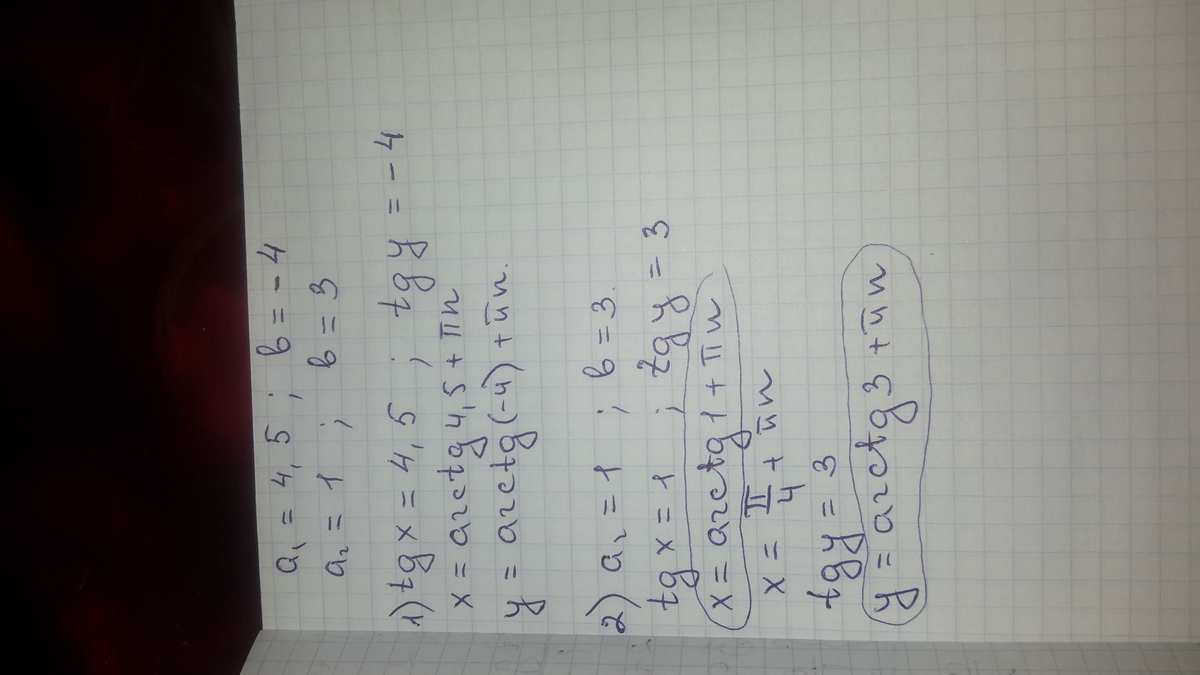 a₁ = 4,5 ; b = -4
a₂ = 1 ; b = 3
1) tg x = 4,5 ; tg y = -4
x = arctg 4,5 + πn
y = arctg (-4) + πn.
2) a₂ = 1 ; b = 3.
tg x = 1 ; tg y = 3
x = arctg 1 + πn
x = π/4 + πn
tg y = 3
y = arctg 3 + πn